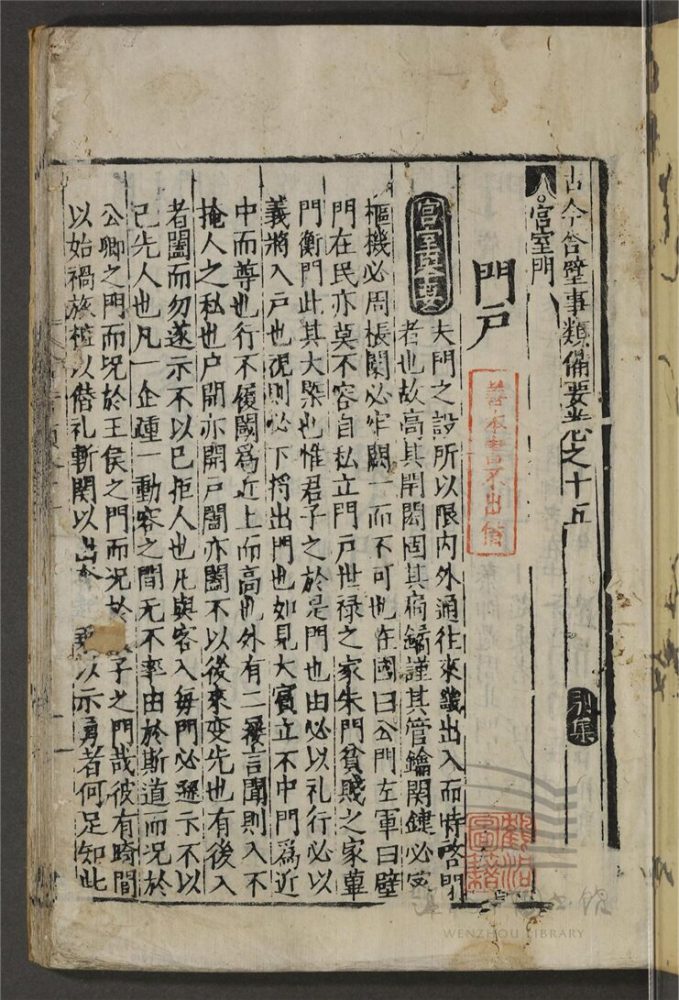 古今合璧事類備要卷之十五 別集
宮室門
門戶
善本書不出借
宮室事要
夫門之設所以限內外通往來譏出入而時啓閉
者也故高其閈閎固其扃鐍謹其管鑰関鍵必密
樞機必周棖闑必牢闕一而不可也在國曰公門左軍曰壁
門在民亦莫不容自私立門戶世禄之家朱門貧賤之家蓽
門衡門此其大槩也惟君子之於是門也由必以礼行必以
義將入戶也視則必下將出門也如見大賓立不中門爲近
中而尊也行不履閾爲近上而高也外有二屨言聞則入不
掩人之私也户開亦開戸闔亦闔不以後來变先也有後入
者闔而勿遂示不以已拒人也凡與客入每門必遜示不以
已先人也凡一企踵一動容之間无不率由於斯道而况於
公卿之門而况於王侯之門而况於 子之門哉彼有踦閭
以始禍旅 以僭礼斬関以出 以示勇者何足知此
WENZHOU LIBRARY